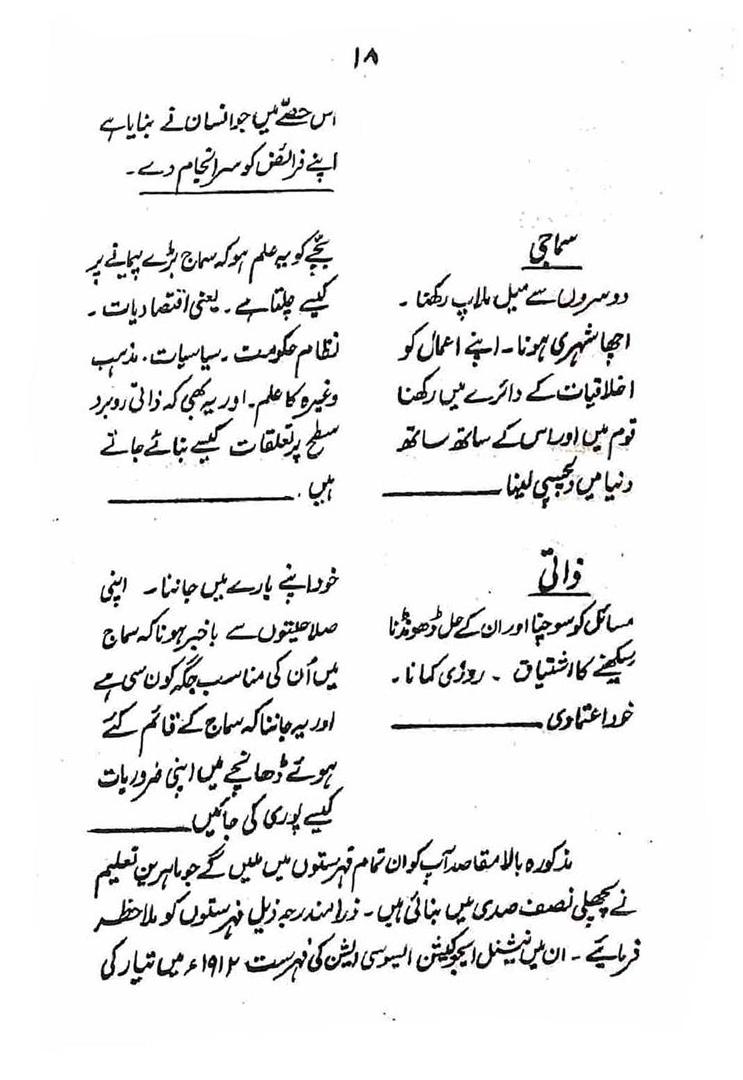 ۱۸
اس حصّے میں جو انسان نے بنایا ہے
اپنے فرائض کو سرانجام دے۔
سماجی
دوسروں سے میل ملاپ رکھنا۔
اچھا شہری ہونا۔ اپنے اعمال کو
اخلاقیات کے دائرے میں رکھنا
قوم میں اور اس کے ساتھ ساتھ
دنیا میں دلچسپی لینا
بچّے کو یہ علم ہو کہ سماج بڑے پیمانے پر
کیسے چلتا ہے۔ یعنی اقتصادیات۔
نظام حکومت۔ سیاسیات۔ مذہب
وغیرہ کا علم۔ اور یہ بھی کہ ذاتی روبرو
سطح پر تعلقات کیسے بنائے جاتے
ہیں۔
ذاتی
مسائل کو سوچنا اور ان کے حل ڈھونڈنا
سیکھنے کا اشتیاق ۔ روزی کمانا۔
خود اعتمادی
خود اپنے بارے میں جاننا۔ اپنی
صلاحیتوں سے باخبر ہونا کہ سماج
میں اُن کی مناسب جگہ کون سی ہے
اور یہ جاننا کہ سماج کے قائم کئے
ہوئے ڈھانچے میں اپنی ضروریات
کیسے پوری کی جائیں
مذکورہ بالا مقاصد آپ کو ان تمام فہرستوں میں ملیں گے جو ماہرین تعلیم
نے پچھلی نصف صدی میں بنائی ہیں۔ ذرا مندرجہ ذیل فہرستوں کو ملاحظہ
فرمائیے۔ ان میں نیشنل ایجوکیشن ایسوسی ایشن کی فہرست ۱۹۱۲ء میں تیار کی